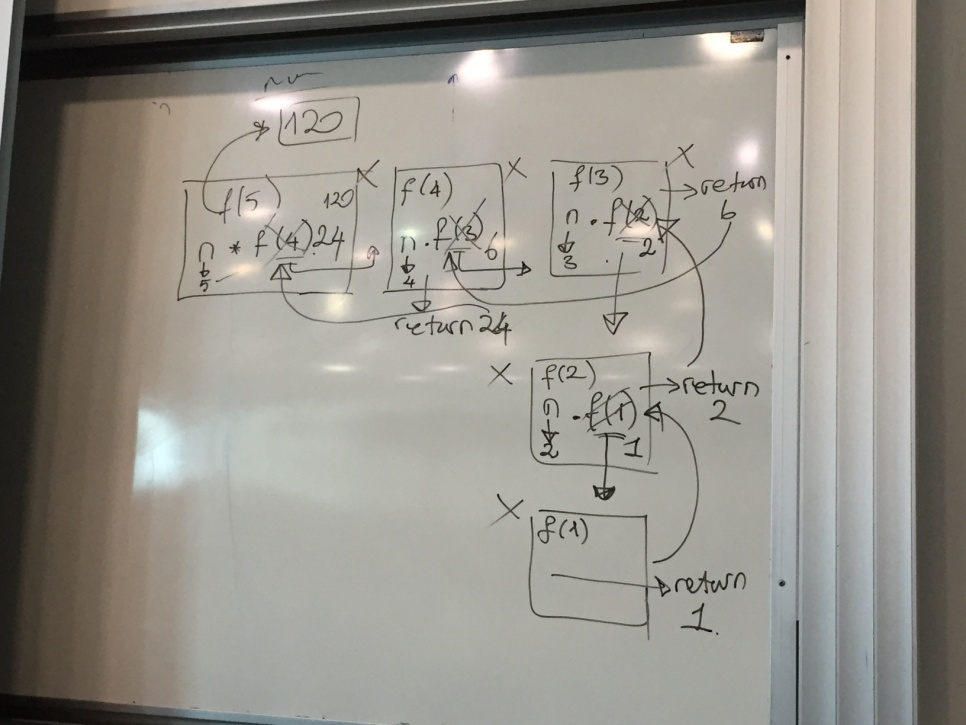 120
f(5) 120
n * f(4).24
5
f(4)
n.f(3) 6
4
return 24
f(3)
n.f(2)
3 2
return
6
f(2)
n.f(1)
2 1
return
2
f(1)
return
1.